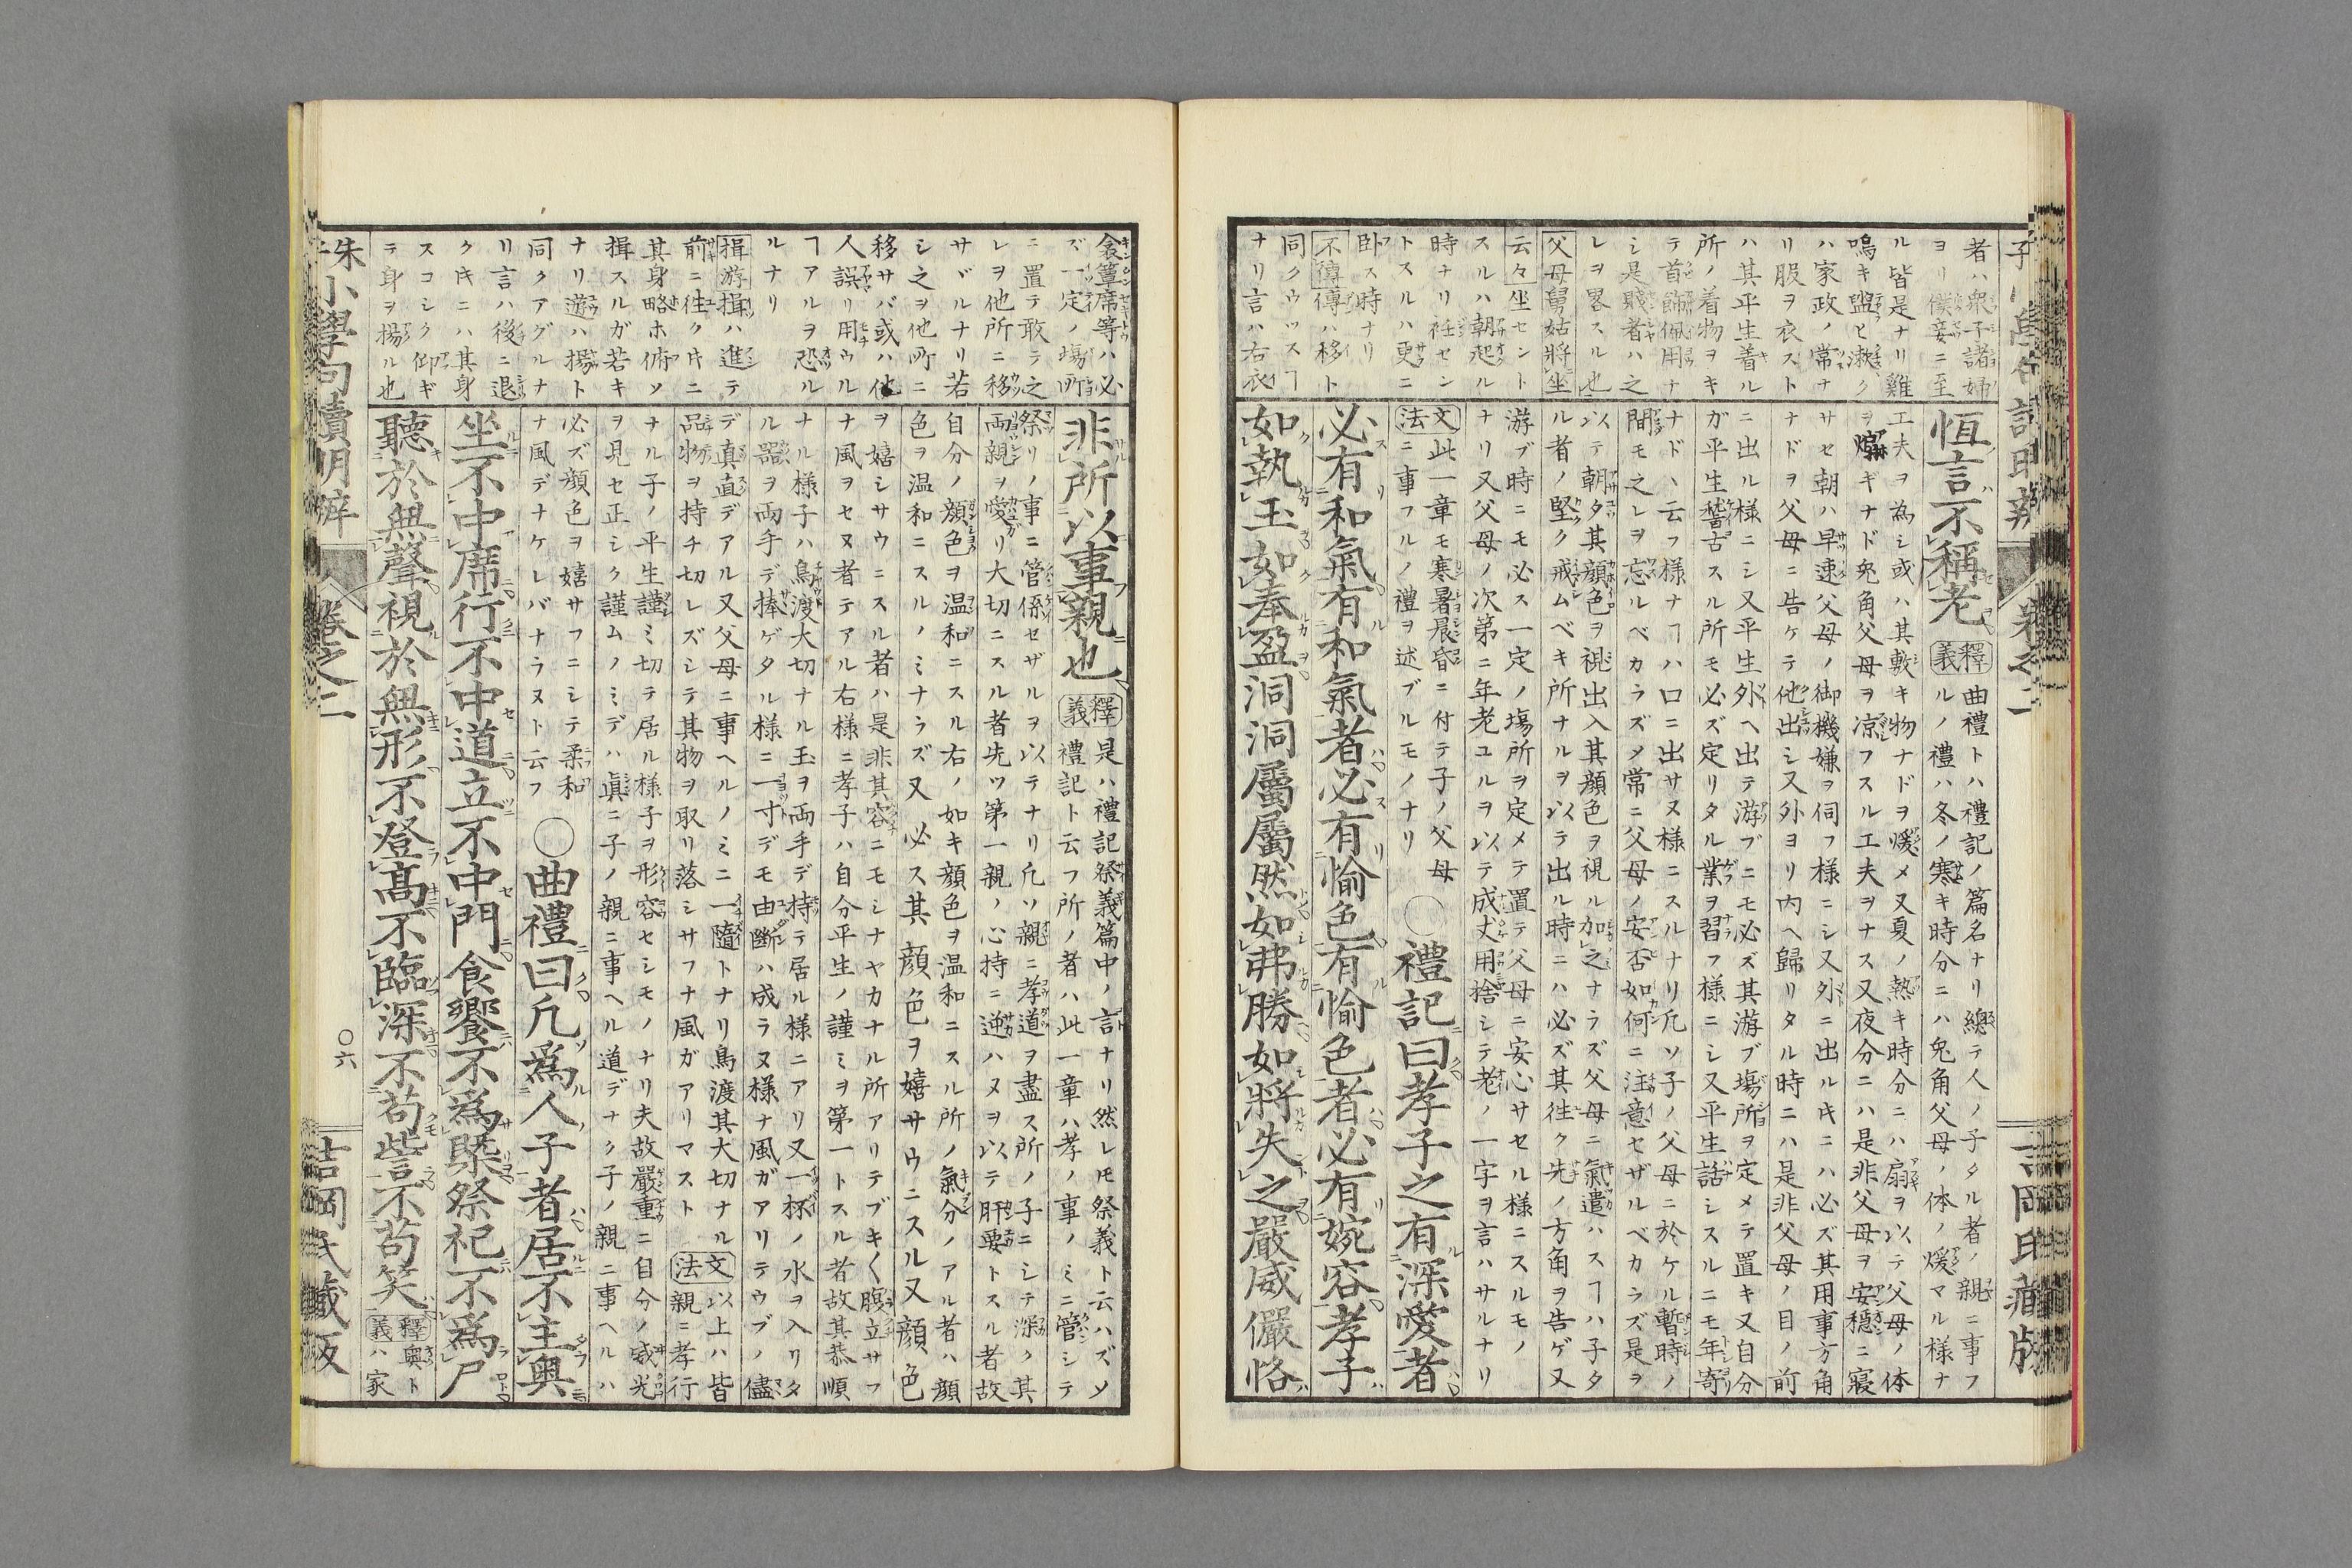 者ハ衆子諸婦
ヨリ僕妾ニ至
ル皆是ナリ雞
鳴キ盥ヒ漱ク
ハ家政ノ常ナ
リ服ヲ衣スト
ハ其平生着ル
所ノ着物ヲキ
テ首飾佩用ナ
シ是賤者ハ之
レヲ畧スル也
父母舅姑將坐
云々坐セント
スルハ朝起ル
時ナリ衽セン
トスルハ更ニ
卧ス時ナリ
不傳傳ハ移ト
同クウツスヿ
ナリ言ハ右衣
恆言不稱老
釋義
曲禮トハ禮記ノ篇名ナリ總テ人ノ子タル者ノ親ニ事フ
ルノ禮ハ冬ノ寒キ時分ニハ兔角父母ノ体ノ煖マル様ナ
工夫ヲ為シ或ハ其敷キ物ナドヲ煖メ又夏ノ熱キ時分ニハ扇ヲ以テ父母ノ体
ヲ煽ギナド兔角父母ヲ凉フスル工夫ヲナス又夜分ニハ是非父母ヲ安穏ニ寢
サセ朝ハ早速父母ノ御機嫌ヲ伺フ様ニシ又外ニ出ル𪜈ニハ必ズ其用事方角
ナドヲ父母ニ告ケテ他出シ又外ヨリ内ヘ歸リタル時ニハ是非父母ノ目ノ前
ニ出ル様ニシ又平生外ヘ出テ游ブニモ必ズ其游ブ塲所ヲ定メテ置キ又自分
ガ平生誊古スル所モ必ズ定リタル業ヲ習フ様ニシ又平生話シスルニモ年寄
ナドヽ云フ様ナヿハ口ニ出サヌ様ニスルナリ凢ソ子ノ父母ニ於ケル暫時ノ
間モ之レヲ忘ルベカラズ〆常ニ父母ノ安否如何ニ注意セザルベカラズ是ヲ
以テ朝タ其顔色ヲ視出入其顔色ヲ視ル加之ナラズ父母ニ氣遣ハスヿハ子タ
ル者ノ堅ク戒ムベキ所ナルヲ以テ出ル時ニハ必ズ其往ク先ノ方角ヲ告ゲ又
游ブ時ニモ必ス一定ノ塲所ヲ定メテ置テ父母ニ安心サセル様ニスルモノ
ナリ又父母ノ次第ニ年老ユルヲ以テ成丈用捨シテ老ノ一字ヲ言ハサルナリ
文法
此一章モ寒暑晨昏ニ付テ子ノ父母
ニ事フルノ禮ヲ述ブルモノナリ
〇禮記曰孝子之有深愛者
必有和氣有和氣者必有愉色有愉色者必有婉容孝子
如執玉如奉盈洞洞屬屬然如弗勝如將失之嚴威儼恪
衾簟席等ハ必
ズ一定ノ塲所
ニ置テ敢テ之
レヲ他所ニ移
サヾルナリ若
シ之ヲ他所ニ
移サバ或ハ他
人誤リ用ウル
ヿアルヲ恐ル
ルナリ
揖游揖ハ進テ
前ニ往ク𪜈ニ
其身略ホ俯ソ
揖スルガ若キ
ナリ遊ハ揚ト
同クアグルナ
リ言ハ後ニ退
ク𪜈ニハ其身
スコシク仰ギ
テ身ヲ揚ル也
非所以事親也
釋義
是ハ禮記祭義篇中ノ言ナリ然レ𪜈祭義ト云ハズ〆
禮記ト云フ所ノ者ハ此一章ハ孝ノ事ノミニ管シテ
祭リノ事ニ管係セザルヲ以テナリ凢ソ親ニ孝道ヲ盡ス所ノ子ニシテ深ク其
両親ヲ愛リ大切ニスル者先ツ第一親ノ心持ニ逆ハヌヲ以テ肝要トスル者故
自分ノ顔色ヲ温和ニスル右ノ如キ顔色ヲ温和ニスル所ノ氣分ノアル者ハ顔
色ヲ温和ニスルノミナラズ又必ス其顔色ヲ嬉サウニスル又顔色
ヲ嬉シサウニスル者ハ是非其容ニモシナヤカナル所アリテブキく腹立サフ
ナ風ヲセヌ者テアル右様ニ孝子ハ自分平生ノ謹ミヲ第一トスル者故其恭順
ナル様子ハ鳥渡大切ナル玉ヲ両手デ持テ居ル様ニアリ又一杯ノ水ヲ入リタ
ル器ヲ両手デ捧ゲタル様ニ一寸デモ由斷ハ成ラヌ様ナ風ガアリテウブノ儘
デ真直デアル又父母ニ事ヘルノミニ一隨トナリ鳥渡其大切ナル
品物ヲ持チ切レズシテ其物ヲ取リ落シサフナ風ガアリマスト
文法
以上ハ皆
親ニ孝行
ナル子ノ平生謹ミ切テ居ル様子ヲ形容セシモノナリ夫故嚴重ニ自分ノ威光
ヲ見セ正シク謹ムノミデハ眞ニ子ノ親ニ事ヘル道デナク子ノ親ニ事ヘルハ
必ズ顔色ヲ嬉サフニシテ柔和
ナ風デナケレバナラヌト云フ
〇曲禮曰凢爲人子者居不主奧
坐不中席行不中道立不中門食饗不爲槩祭祀不爲尸
聽於無聲視於無形不登高不臨深不苟訾不苟笑
釋義
奧ト
ハ家
朱子小學句讀明辨 卷之二 〇六 吉岡氏藏版